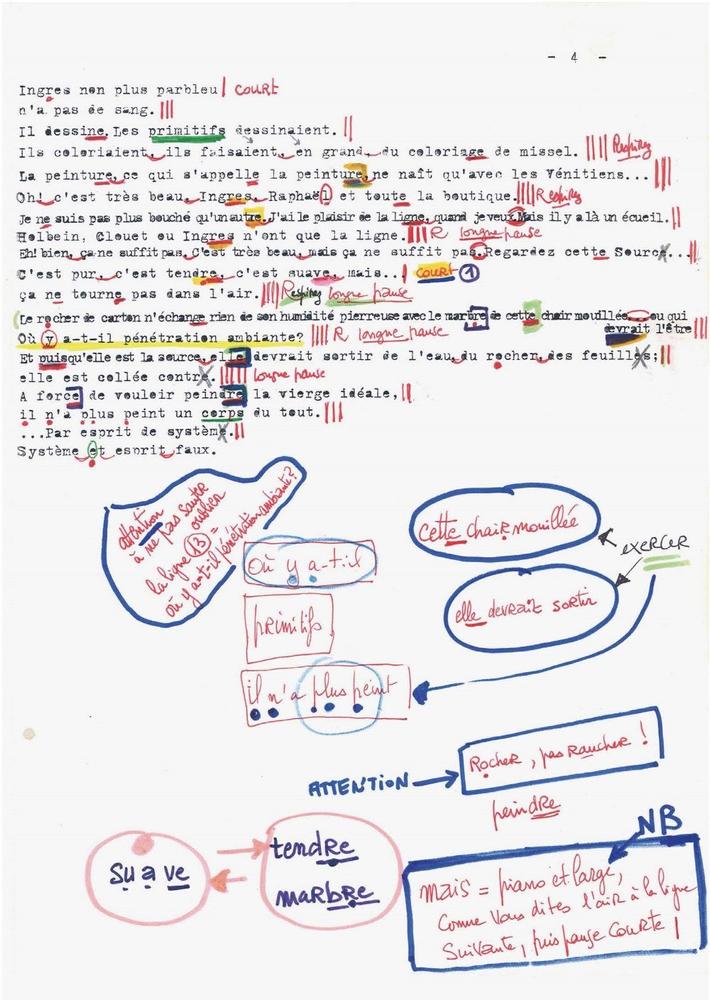 - 4 -
Ingres non plus parbleu | COURT
n'a pas de sang. |||
Il dessine. Les primitifs dessinaient. ||
Ils coloriaient, ils faisaient, en grand, du coloriage de missel. |||| Respirez
La peinture, ce qui s'appelle la peinture, ne naît qu'avec les Vénitiens... |||
Oh! c'est très beau, Ingres, Raphaël et toute la boutique. |||| Respirez
Je ne suis pas plus bouché qu'un autre. J'ai le plaisir de la ligne, quand je veux. Mais il y a là un écueil. ||
Holbein, Clouet ou Ingres n'ont que la ligne. ||| R longue pause
Eh! bien, ça ne suffit pas. C'est très beau, mais ça ne suffit pas. Regardez cette Source... ||
C'est pur, c'est tendre, c'est suave, mais... | COURT 1
ça ne tourne pas dans l'air. |||| Respirez longue pause
Le rocher de carton n'échange rien de son humidité pierreuse avec le marbre de cette chair mouillée... ou qui
devrait l'être |||
Où y a-t-il pénétration ambiante? |||| R longue pause
Et puisqu'elle est la source, elle devrait sortir de l'eau, du rocher, des feuilles; ||
elle est collée contre. ||||| longue pause
A force de vouloir peindre la vierge idéale, ||
il n'a plus peint un corps du tout. |||
...Par esprit de système. ||
Système et esprit faux.
attention
à ne pas sauter
la ligne 13 =
où y a-t-il pénétration ambiante?
Où y a-t-il
primitifs
il n'a plus peint
cette chair mouillée
EXERCER
elle devrait sortir
ATTENTION
Rocher, pas Raucher !
peindre
NB
Suave
tendre
marbre
mais = piano et large,
comme vous dites l'air à la ligne
suivante, puis pause courte |